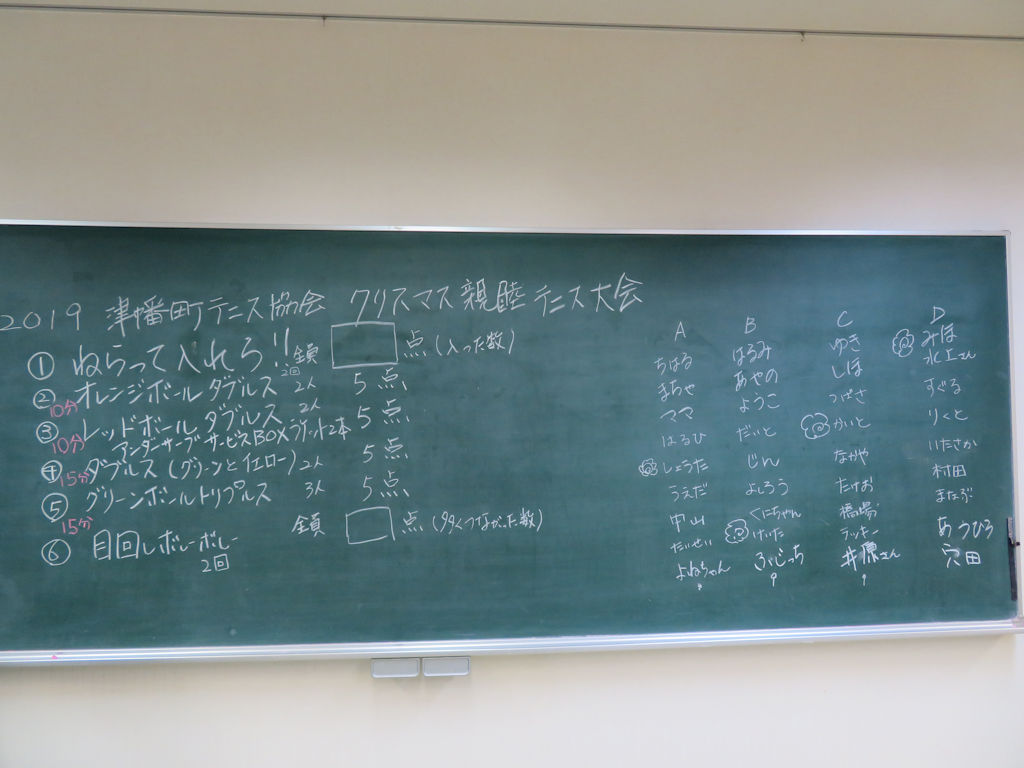 2019 津幡町テニス協会 クリスマス親睦テニス大会
① ねらって入れろ!! 全員 2回 点(入った数)
② オレンジボール ダブルス 2人 5点
10分
③ レッドボール ダブルス 2人 5点
10分 アンダーサーブ サービスBOX ラケット2本
④ ダブルス(グリーンとイエロー) 2人 5点
15分
⑤ グリーンボールトリプルス 3人 5点
15分
⑥ 目回しボレーボレー 全員 点(多くつながった数)
2回
A
ちはる
まちゃ
ママ
はるひ
しょうた
うえだ
中山
たいせい
よねちゃん
B
はるみ
あやの
ようこ
だいと
じん
よしろう
くにちゃん
けいた
ふじっち
C
ゆき
しほ
つばさ
かいと
なかや
たけお
橋場
ラッキー
井原さん
D
みほ
水上さん
すぐる
りくと
いたさか
村田
まなぶ
あつひろ
穴田